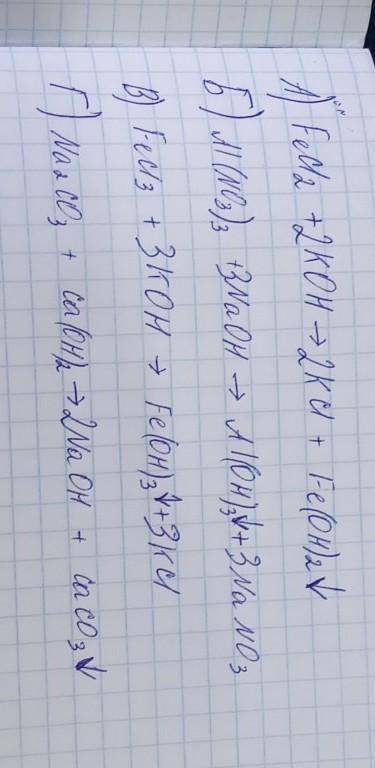 А) FeCl2 + 2KOH → 2KCl + Fe(OH)2↓
Б) Al(NO3)3 + 3NaOH → Al(OH)3↓ + 3NaNO3
В) FeCl3 + 3KOH → Fe(OH)3↓ + 3KCl
Г) Na2CO3 + Ca(OH)2 → 2NaOH + CaCO3↓